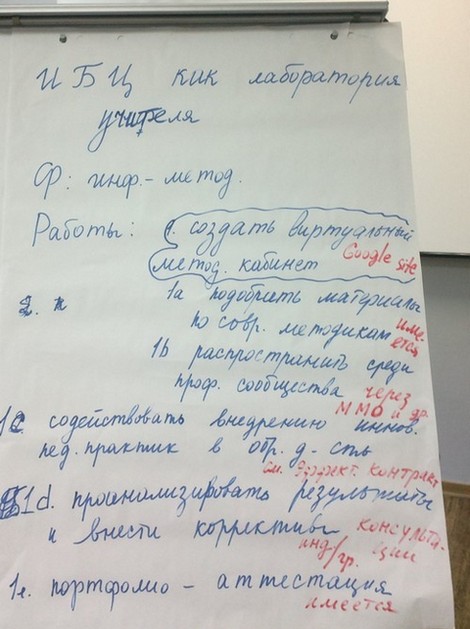 ИБЦ как лаборатория
учителя
Ф: инф.-метод.
Работы: 1. создать виртуальный
метод. кабинет Google site
2. п 1а подобрать материалы
по совр. методикам имеется
1b распространить среди
проф. сообщества через
ММО и др.
1c содействовать внедрению иннов.
пед. практик в обр. д-сть
см. Эффект. контракт
1d. проанализировать результаты
и внести коррективы консультации
инд/гр.
1e. портфолио - аттестация
имеется